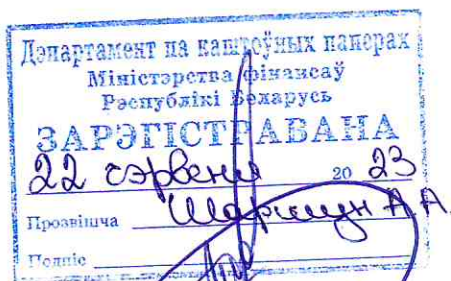 Дэпартамент па каштоўных паперах
Міністэрства фінансаў
Рэспублікі Беларусь
ЗАРЭГІСТРАВАНА
22 чэрвеня 20 23
Прозвішча А.А.
Подпіс